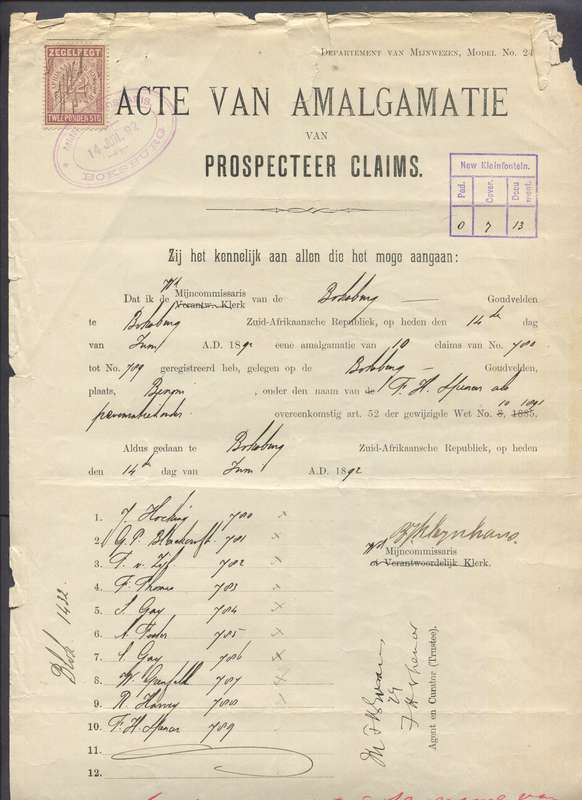 DEPARTEMENT VAN MIJNWEZEN, MODEL No. 24
ZEGELREGT
TWEE PONDEN STG
14 JUN. 92
BOKSBURG
ACTE VAN AMALGAMATIE
VAN
PROSPECTEER CLAIMS.
New Kleinfontein.
Pad. Cover. Docu ment.
0 7 13
Zij het kennelijk aan allen die het moge aangaan:
Dat ik de Wd Mijncommissaris van de Boksburg Goudvelden
Verantw. Klerk
te Boksburg Zuid-Afrikaansche Republiek, op heden den 14de dag
van Juni A.D. 1892 eene amalgamatie van 10 claims van No. 780
tot No. 789 geregistreerd heb, gelegen op de Boksburg Goudvelden,
plaats, Benoni, onder den naam van de F. H. Spencer als
10 1891
overeenkomstig art. 52 der gewijzigde Wet No. 8, 1885.
Aldus gedaan te Boksburg Zuid-Afrikaansche Republiek, op heden
den 14de dag van Juni A.D. 1892
1. J. Hocking 780
2. G. P. 781
3. F. v. Zyl 782
4. F. Thomas 783
5. S. Gay 784
6. A. Foster 785
7. S Gay 786
8. W. 787
9. R. Harvey 788
10. F. H. Spencer 789
11.
12.
Wd
Mijncommissaris
of Verantwoordelijk Klerk.
F H Spencer
Agent en Curator (Trustee).
Blok 1422.